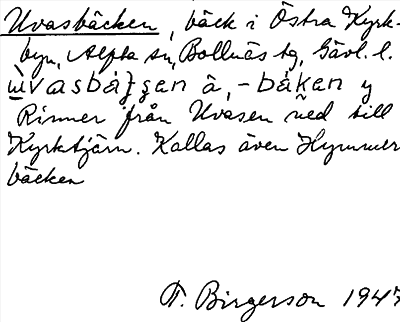 Uvasbäcken, bäck i Östra Kyrk-
byn, Alfta sn, Bollnäs tg, Gävl. l.
ùvasbáʒ̨an å, -bákan y
Rinner från Uvasen ned till
Kyrktjärn. Kallas även Hymmer
bäcken
T. Birgerson 1947